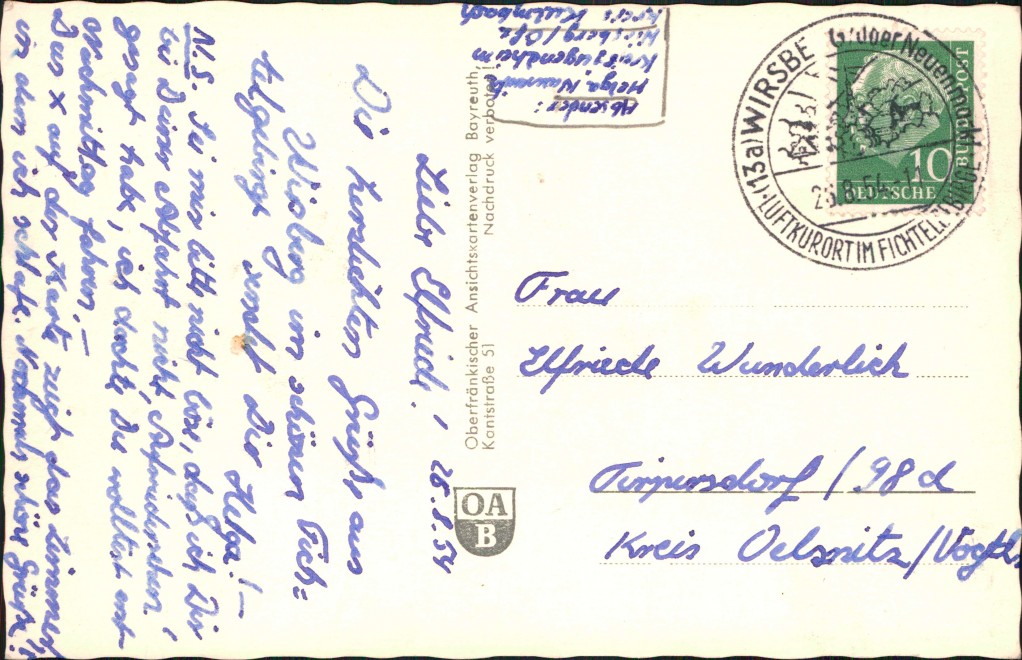 Absender:
Helga
Kreisjugendheim
Wirsberg / Ofr.
Kreis Kulmbach
(13a) WIRSBE G
LUFTKURORT IM FICHTELGEBIRGE
26.8.54
DEUTSCHE
BUNDESPOST
10
Liebe Elfriede! 25.8.54
Die herzlichsten Grüße aus
Wirsberg im schönen Fich=
telgebirge sendet Dir
Helga! –
N.S. Sei mir bitte nicht böse, daß ich Dir
bei Deiner Abfahrt nicht „Aufwiedersehen“
gesagt habe, ich dachte, Du wolltest erst
nachmittag fahren. –
Das x auf der Karte zeigt das Zimmer
in dem ich schlafe. Nochmals schöne Grüße!
Oberfränkischer Ansichtskartenverlag Bayreuth,
Kantstraße 51 Nachdruck verboten!
OA
B
Frau
Elfriede Wunderlich
Tirpersdorf / 98d
Kreis Oelsnitz/Vogtl.